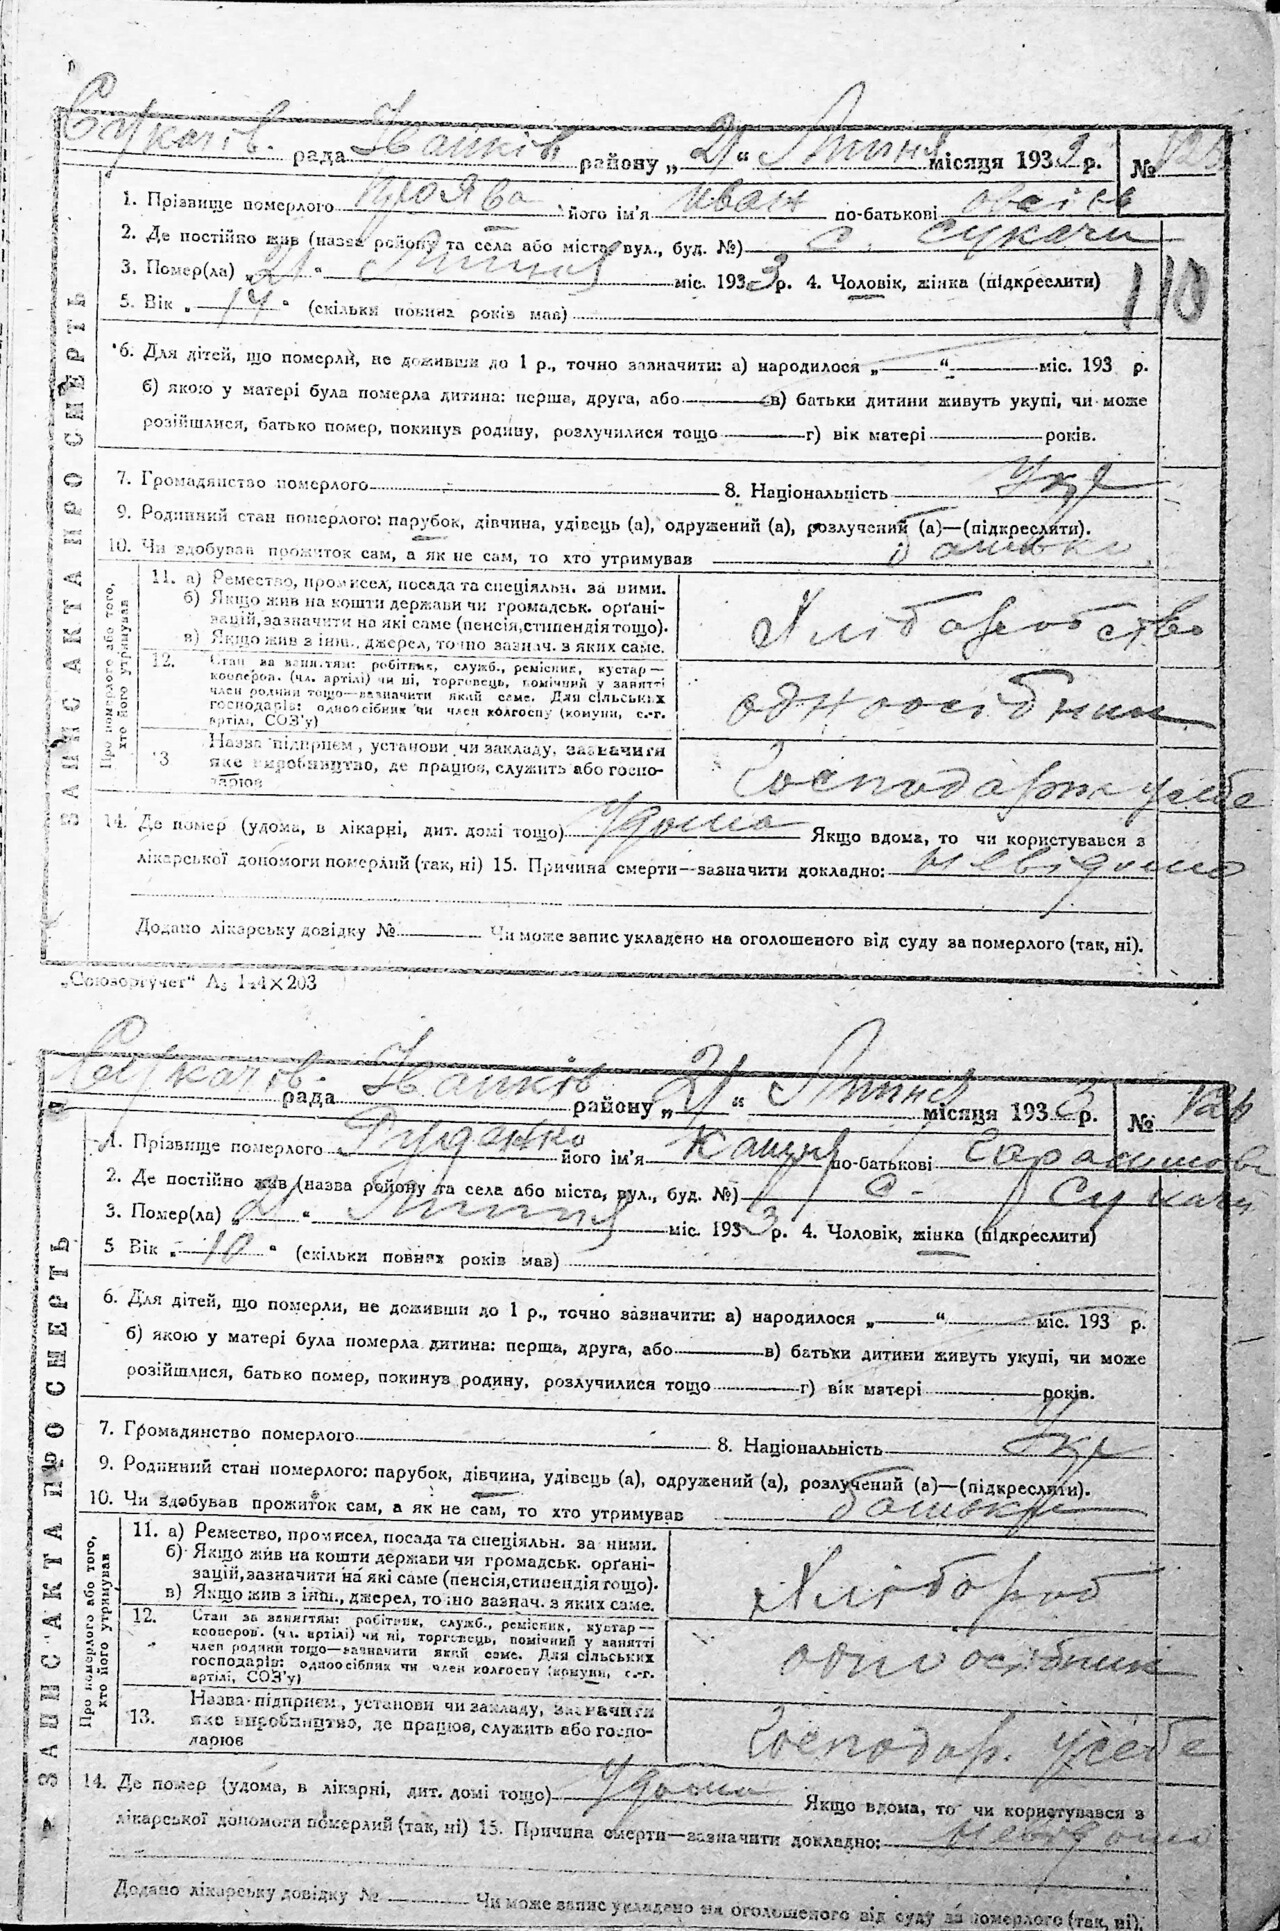 Сукачів. рада Іванків району „21“ Липня місяця 1933 р. №
1. Прізвище померлого Проява його ім'я Иван по-батькові
2. Де постійно жив (назва району та села або міста, вул., буд. №) с. Сукачи
3. Помер(ла) „21“ Липня міс. 1933 р. 4. Чоловік, жінка (підкреслити)
110
5. Вік „17“ (скільки повних років мав)
6. Для дітей, що померли, не доживши до 1 р., точно зазначити: а) народилося „ “ міс. 193 р.
б) якою у матері була померла дитина: перша, друга, або в) батьки дитини живуть укупі, чи може
розійшлися, батько помер, покинув родину, розлучилися тощо г) вік матері років.
7. Громадянство померлого 8. Національність Укр
9. Родинний стан померлого: парубок, дівчина, удівець (а), одружений (а), розлучений (а)—(підкреслити).
10. Чи здобував прожиток сам, а як не сам, то хто утримував батько
ЗАПИС АКТА ПРО СМЕРТЬ
Про померлого або того, хто його утримував
11. а) Ремество, промисел, посада та спеціяльн. за ними.
б) Якщо жив на кошти держави чи громадськ. орґані-
зацій, зазначити на які саме (пенсія, стипендія тощо).
в) Якщо жив з інш. джерел, точно зазнач. з яких саме.
Хліборобство
12. Стан за заняттям: робітник, служб., ремісник, кустар—
кооперов. (чл. артілі) чи ні, торговець, помічний у занятті
член родини тощо—зазначити який саме. Для сільських
господарів: одноосібник чи член колгоспу (комуни, с.-г.
артілі, СОЗ'у)
одноосібник
13. Назва підприєм., установи чи закладу, зазначити
яке виробництво, де працює, служить або госпо-
дарює
Господарює у себе
14. Де помер (удома, в лікарні, дит. домі тощо) Удома Якщо вдома, то чи користувався з
лікарської допомоги померлий (так, ні) 15. Причина смерти—зазначити докладно: невідомо
Додано лікарську довідку № Чи може запис укладено на оголошеного від суду за померлого (так, ні).
„Союзоргучет“ А₅ 144×203
Сукачів. рада Іванків району „21“ Липня місяця 1933 р. №
1. Прізвище померлого Руданко його ім'я по-батькові Гарасимовн
2. Де постійно жив (назва району та села або міста, вул., буд. №) с. Сукачи
3. Помер(ла) „21“ Липня міс. 1933 р. 4. Чоловік, жінка (підкреслити)
5 Вік „10“ (скільки повних років мав)
6. Для дітей, що померли, не доживши до 1 р., точно зазначити: а) народилося „ “ міс. 193 р.
б) якою у матері була померла дитина: перша, друга, або в) батьки дитини живуть укупі, чи може
розійшлися, батько помер, покинув родину, розлучилися тощо г) вік матері років.
7. Громадянство померлого 8. Національність Укр
9. Родинний стан померлого: парубок, дівчина, удівець (а), одружений (а), розлучений (а)—(підкреслити).
10. Чи здобував прожиток сам, а як не сам, то хто утримував батьки
ЗАПИС АКТА ПРО СМЕРТЬ
Про померлого або того, хто його утримував
11. а) Ремество, промисел, посада та спеціяльн. за ними.
б) Якщо жив на кошти держави чи громадськ. орґані-
зацій, зазначити на які саме (пенсія, стипендія тощо).
в) Якщо жив з інш., джерел, точно зазнач. з яких саме.
Хлібороб
12. Стан за заняттям: робітник, служб., ремісник, кустар—
кооперов. (чл. артілі) чи ні, торговець, помічний у занятті
член родини тощо—зазначити який саме. Для сільських
господарів: одноосібник чи член колгоспу (комуни, с.-г.
артілі, СОЗ'у)
одноосібник
13. Назва підприєм., установи чи закладу, зазначити
яке виробництво, де працює, служить або госпо-
дарює
Господар. у себе
14. Де помер (удома, в лікарні, дит. домі тощо) Удома Якщо вдома, то чи користувався з
лікарської допомоги померлий (так, ні) 15. Причина смерти—зазначити докладно: невідомо
Додано лікарську довідку № Чи може запис укладено на оголошеного від суду за померлого (так, ні).